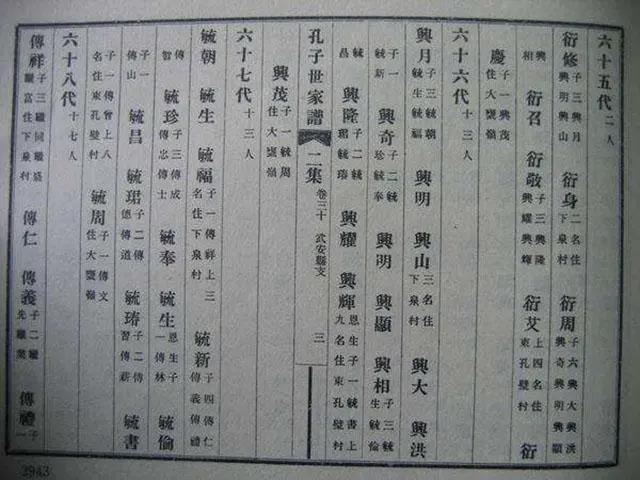 六十五代 二人
衍修 子三興月興明興山 衍身 二名住下泉村 衍周 子六興大興洪興奇興明興顯
興相 衍召 衍敬 子三興隆興耀興輝 衍艾 上四名住東孔壁村 衍
慶 子一興茂住大甕嶺
六十六代 十三人
興月 子三毓朝毓生毓福 興明 興山 三名住下泉村 興大 興洪
子一毓新 興奇 子二毓珍毓奉 興明 興顯 興相 子三毓生毓倫
毓昌 興隆 子二毓珺毓琦 興耀 興輝 恩生子一毓書上九名住東孔壁村
孔子世家譜 二集 卷三十 武安縣支 三
興茂 子一毓周住大甕嶺
六十七代 十三人
毓朝 毓生 毓福 子一傳祥上三名住下泉村 毓新 子四傳仁傳義傳禮
傳智 毓珍 子三傳成傳忠傳士 毓奉 毓生 恩生子一傳林 毓倫
子一傳山 毓昌 毓珺 子二傳德傳道 毓琦 子二傳習傳薪 毓書
子一傳曾上八名住東孔壁村 毓周 子一傳文住大甕嶺
六十八代 十七人
傳祥 子三繼同繼盛繼富住下泉村 傳仁 傳義 子二繼先繼業 傳禮 子一
3943